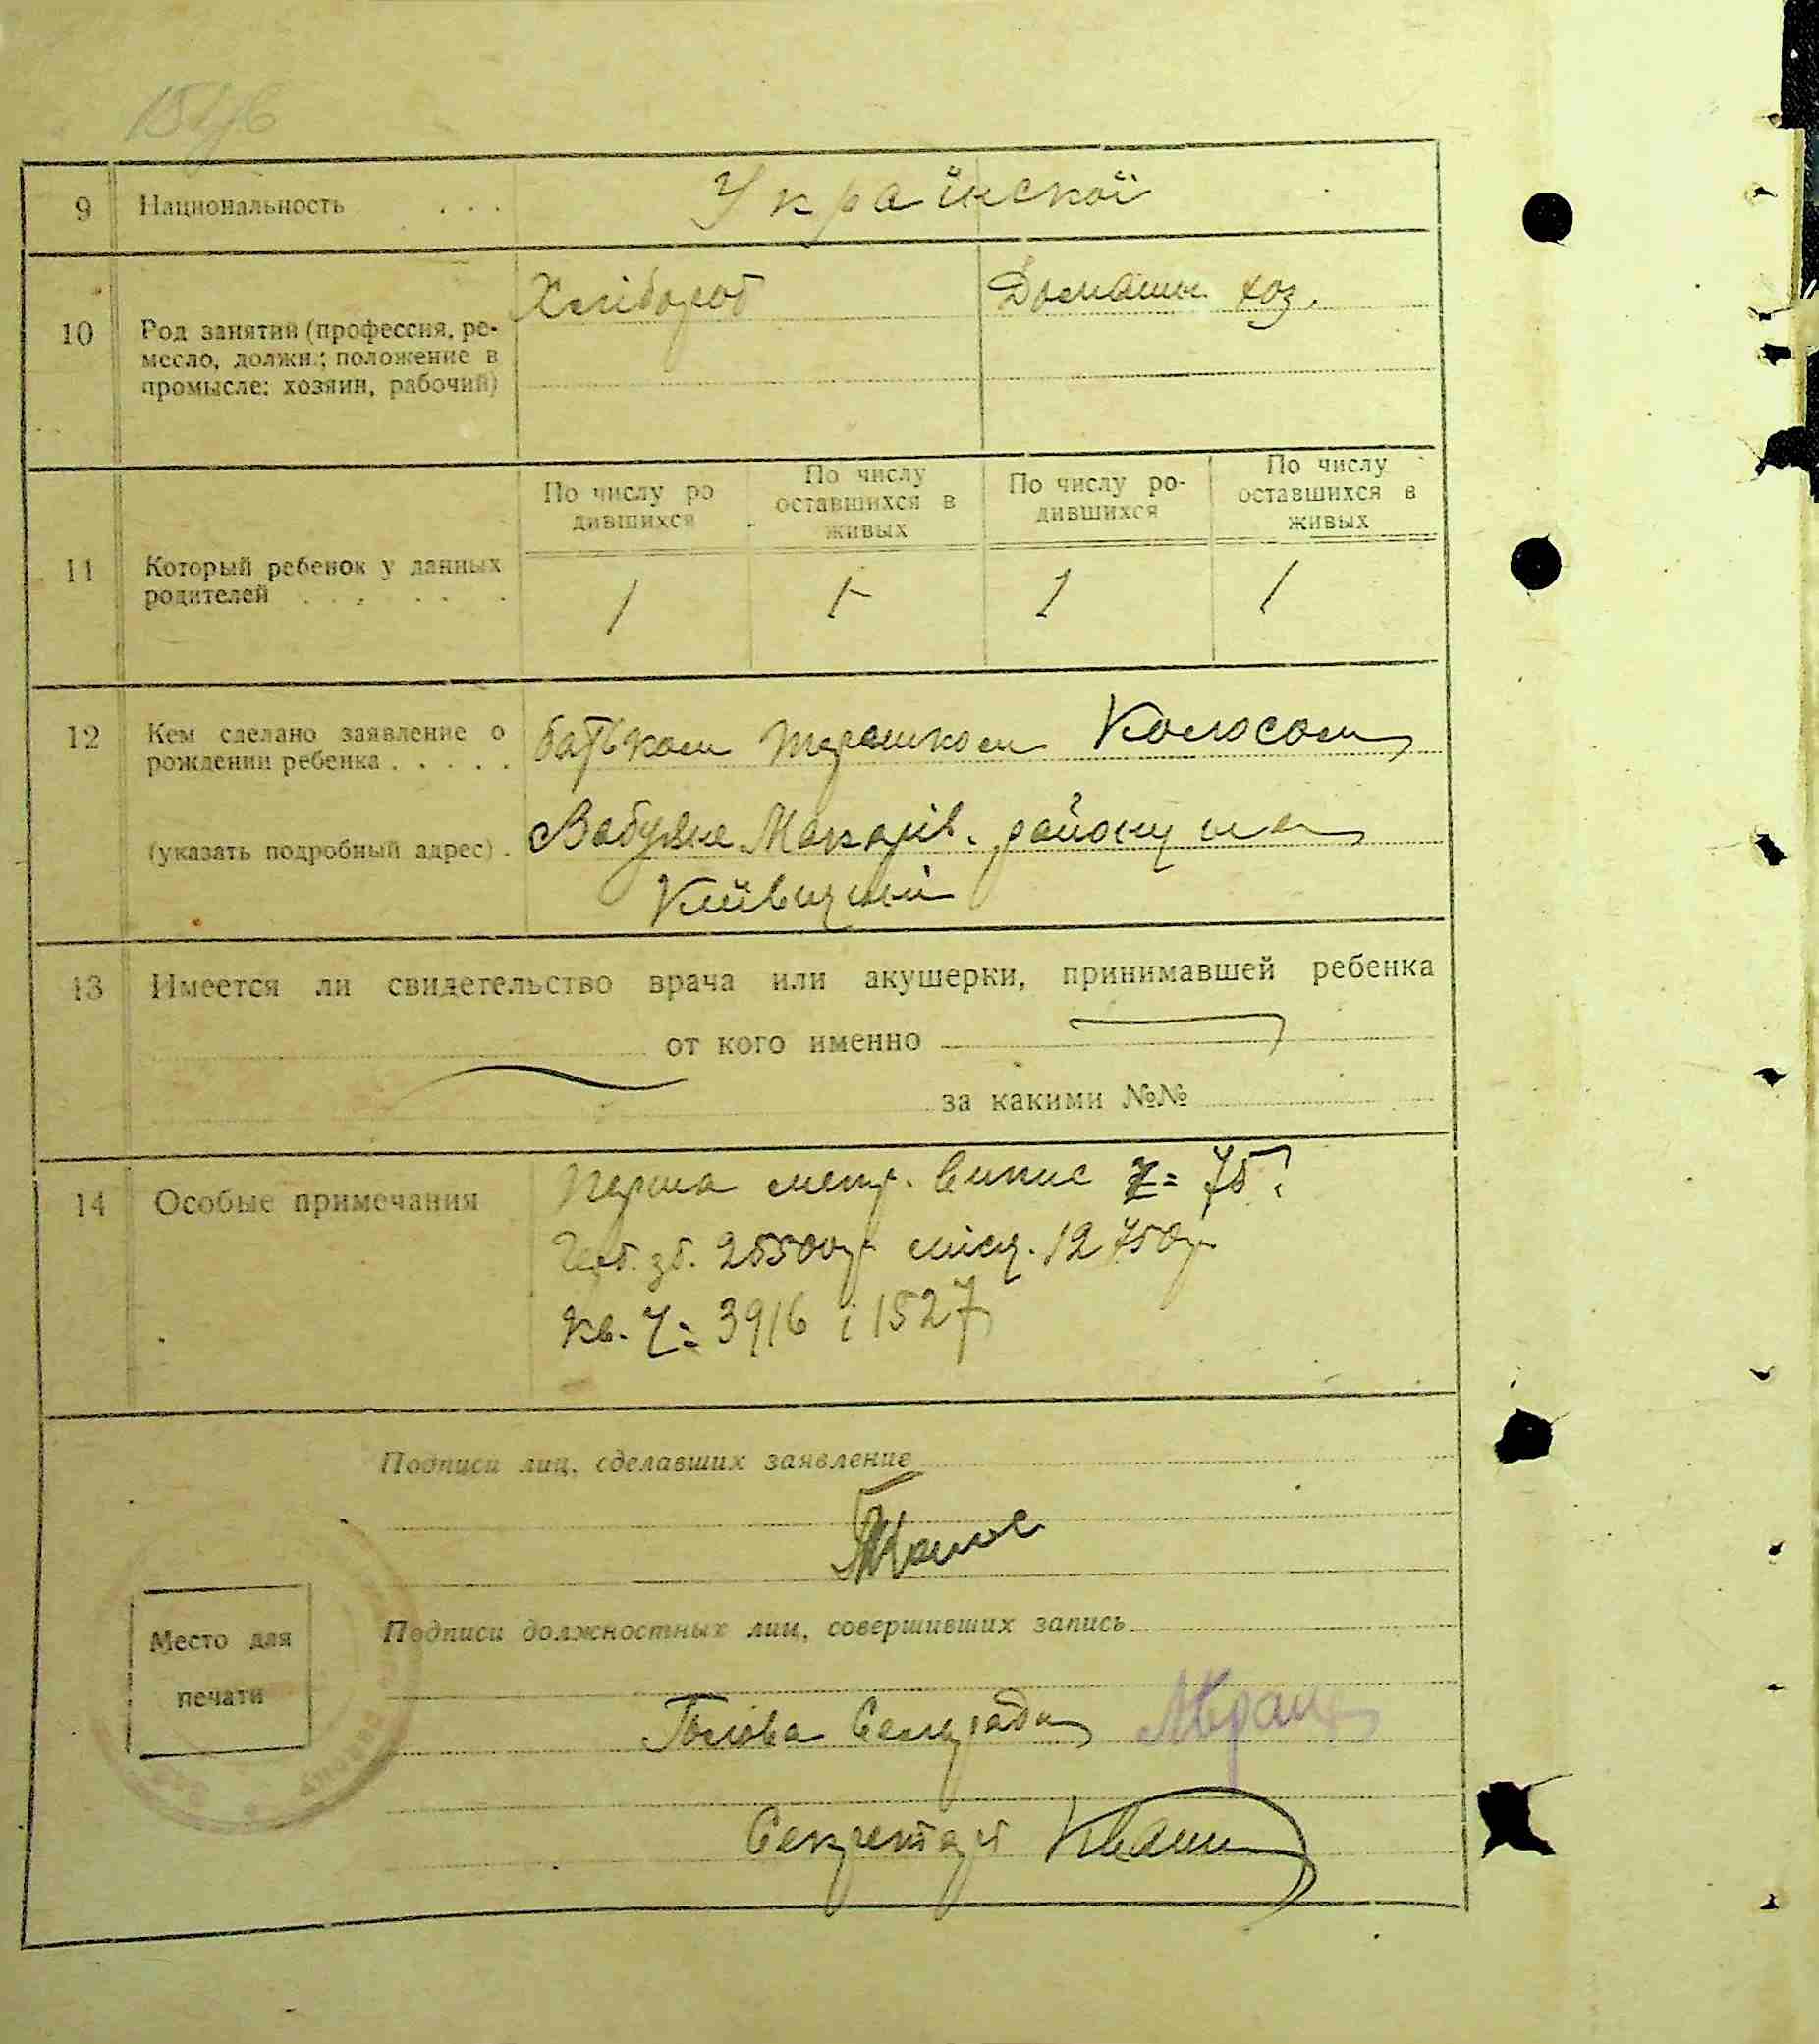 9 Национальность . . . Украінскої
10 Род занятий (профессия, ре-
месло, должн.; положение в
промысле: хозяин, рабочий)
Хлібороб
Домашн. хоз.
11 Который ребенок у данных
родителей . . . . .
По числу ро
дившихся
По числу
оставшихся в
живых
По числу ро-
дившихся
По числу
оставшихся в
живых
1 1 1 1
12 Кем сделано заявление о
рождении ребенка . . . . .
(указать подробный адрес) .
батьком Терешком Колосом
Макарів. району на
Київщині
13 Имеется ли свидетельство врача или акушерки, принимавшей ребенка
от кого именно
за какими №№
14 Особые примечания
Перша метр. випис 75
зб. 25500 місц. 12750
Кв. 3916 і 1527
Подписи лиц, сделавших заявление
Место для
печати
Подписи должностных лиц, совершивших запись
Голова Сельради
Секретарь